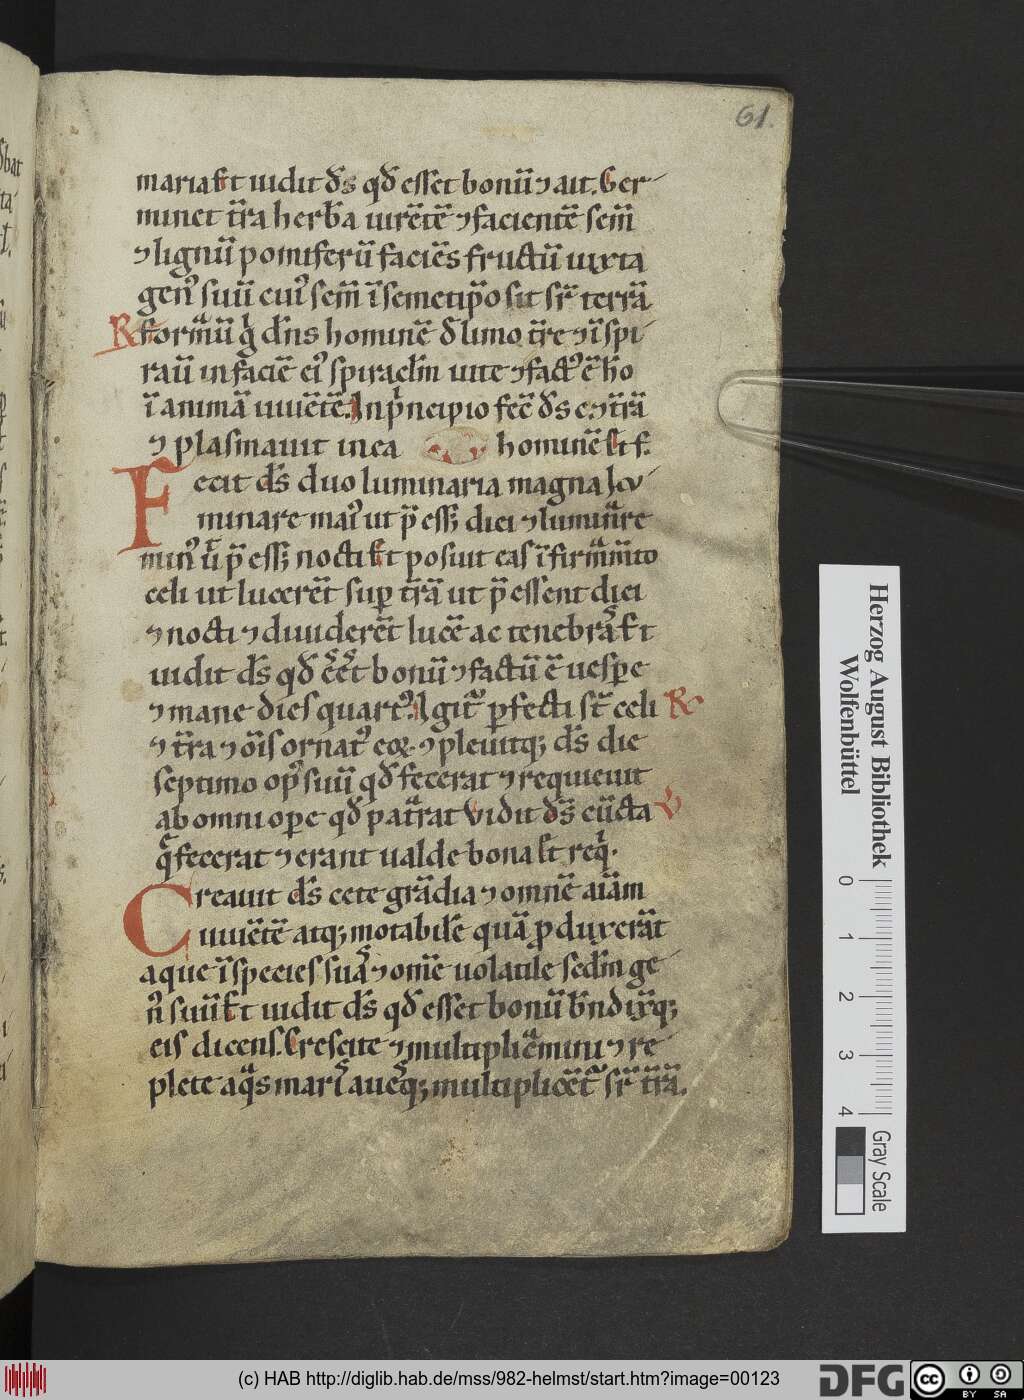 61.
maria. Et uidit d̄s qd̄ esset bonū ⁊ ait. Ger-
minet t̄ra herb̄a uirētē ⁊ facientē sem̄
⁊ lignū pomiferū faciēs fructū iuxta
genꝰ suū cuiꝰ sem̄ ī semetip̄o sit sr̄ terrā
R̄ formauͣ g̍ dn̄s hominē d̄ limo t̄re ⁊ īspi-
rauͣ in faciē eiꝰ spiraclm̄ uite ⁊ factꝰ ē hō
ī animā uiuētē. In pⁱncipio fec̄ d̄s c. ⁊ t̄rā
⁊ plasmauit in ea hominē Et f.
Fecit d̄s duo luminaria magna lu-
minare maiꝰ ut p̄ess; diei ⁊ luminͣre
minꝰ ut p̄ess; nocti Et posuit eas ī firmͣm̄to
celi ut lucerēt suꝑ t̄rā ut p̄essent diei
⁊ nocti ⁊ diuiderēt lucē ac tenebrͣs Et
uidit d̄s qd̄ eēt bonū ⁊ factū ē uespe
⁊ mane dies quartꝰ. Igitᷣ ꝑfecti st̄ celi R̄
⁊ t̄ra ⁊ oīs ornatꝰ eoꝝ ⁊ pleuitq; d̄s die
septimo opꝰ suū qd̄ fecerat ⁊ requieuit
ab omni oꝑe qd̄ patͣrat Vidit d̄s cūcta V
q̄ fecerat ⁊ erant ualde bona Et reqⁱ.
Creauit d̄s cete grādia ⁊ omnē aīam
uiuētē atq; motabilē quā ꝓduxerāt
aque ī species suͣs ⁊ om̄e uolatile sedm̄ ge-
nꝰ suū Et uidit d̄s qd̄ esset bonū bn̄dixͭq;
eis dicens. Crescite ⁊ multiplicͣmini ⁊ re-
plete aqͣs marⁱs auesq; multiplicētᷣ sr̄ t̄rā.
Herzog August Bibliothek
Wolfenbüttel
0 1 2 3 4
Gray Scale
(c) HAB http://diglib.hab.de/mss/982-helmst/start.htm?image=00123
DFG
cc
BY SA